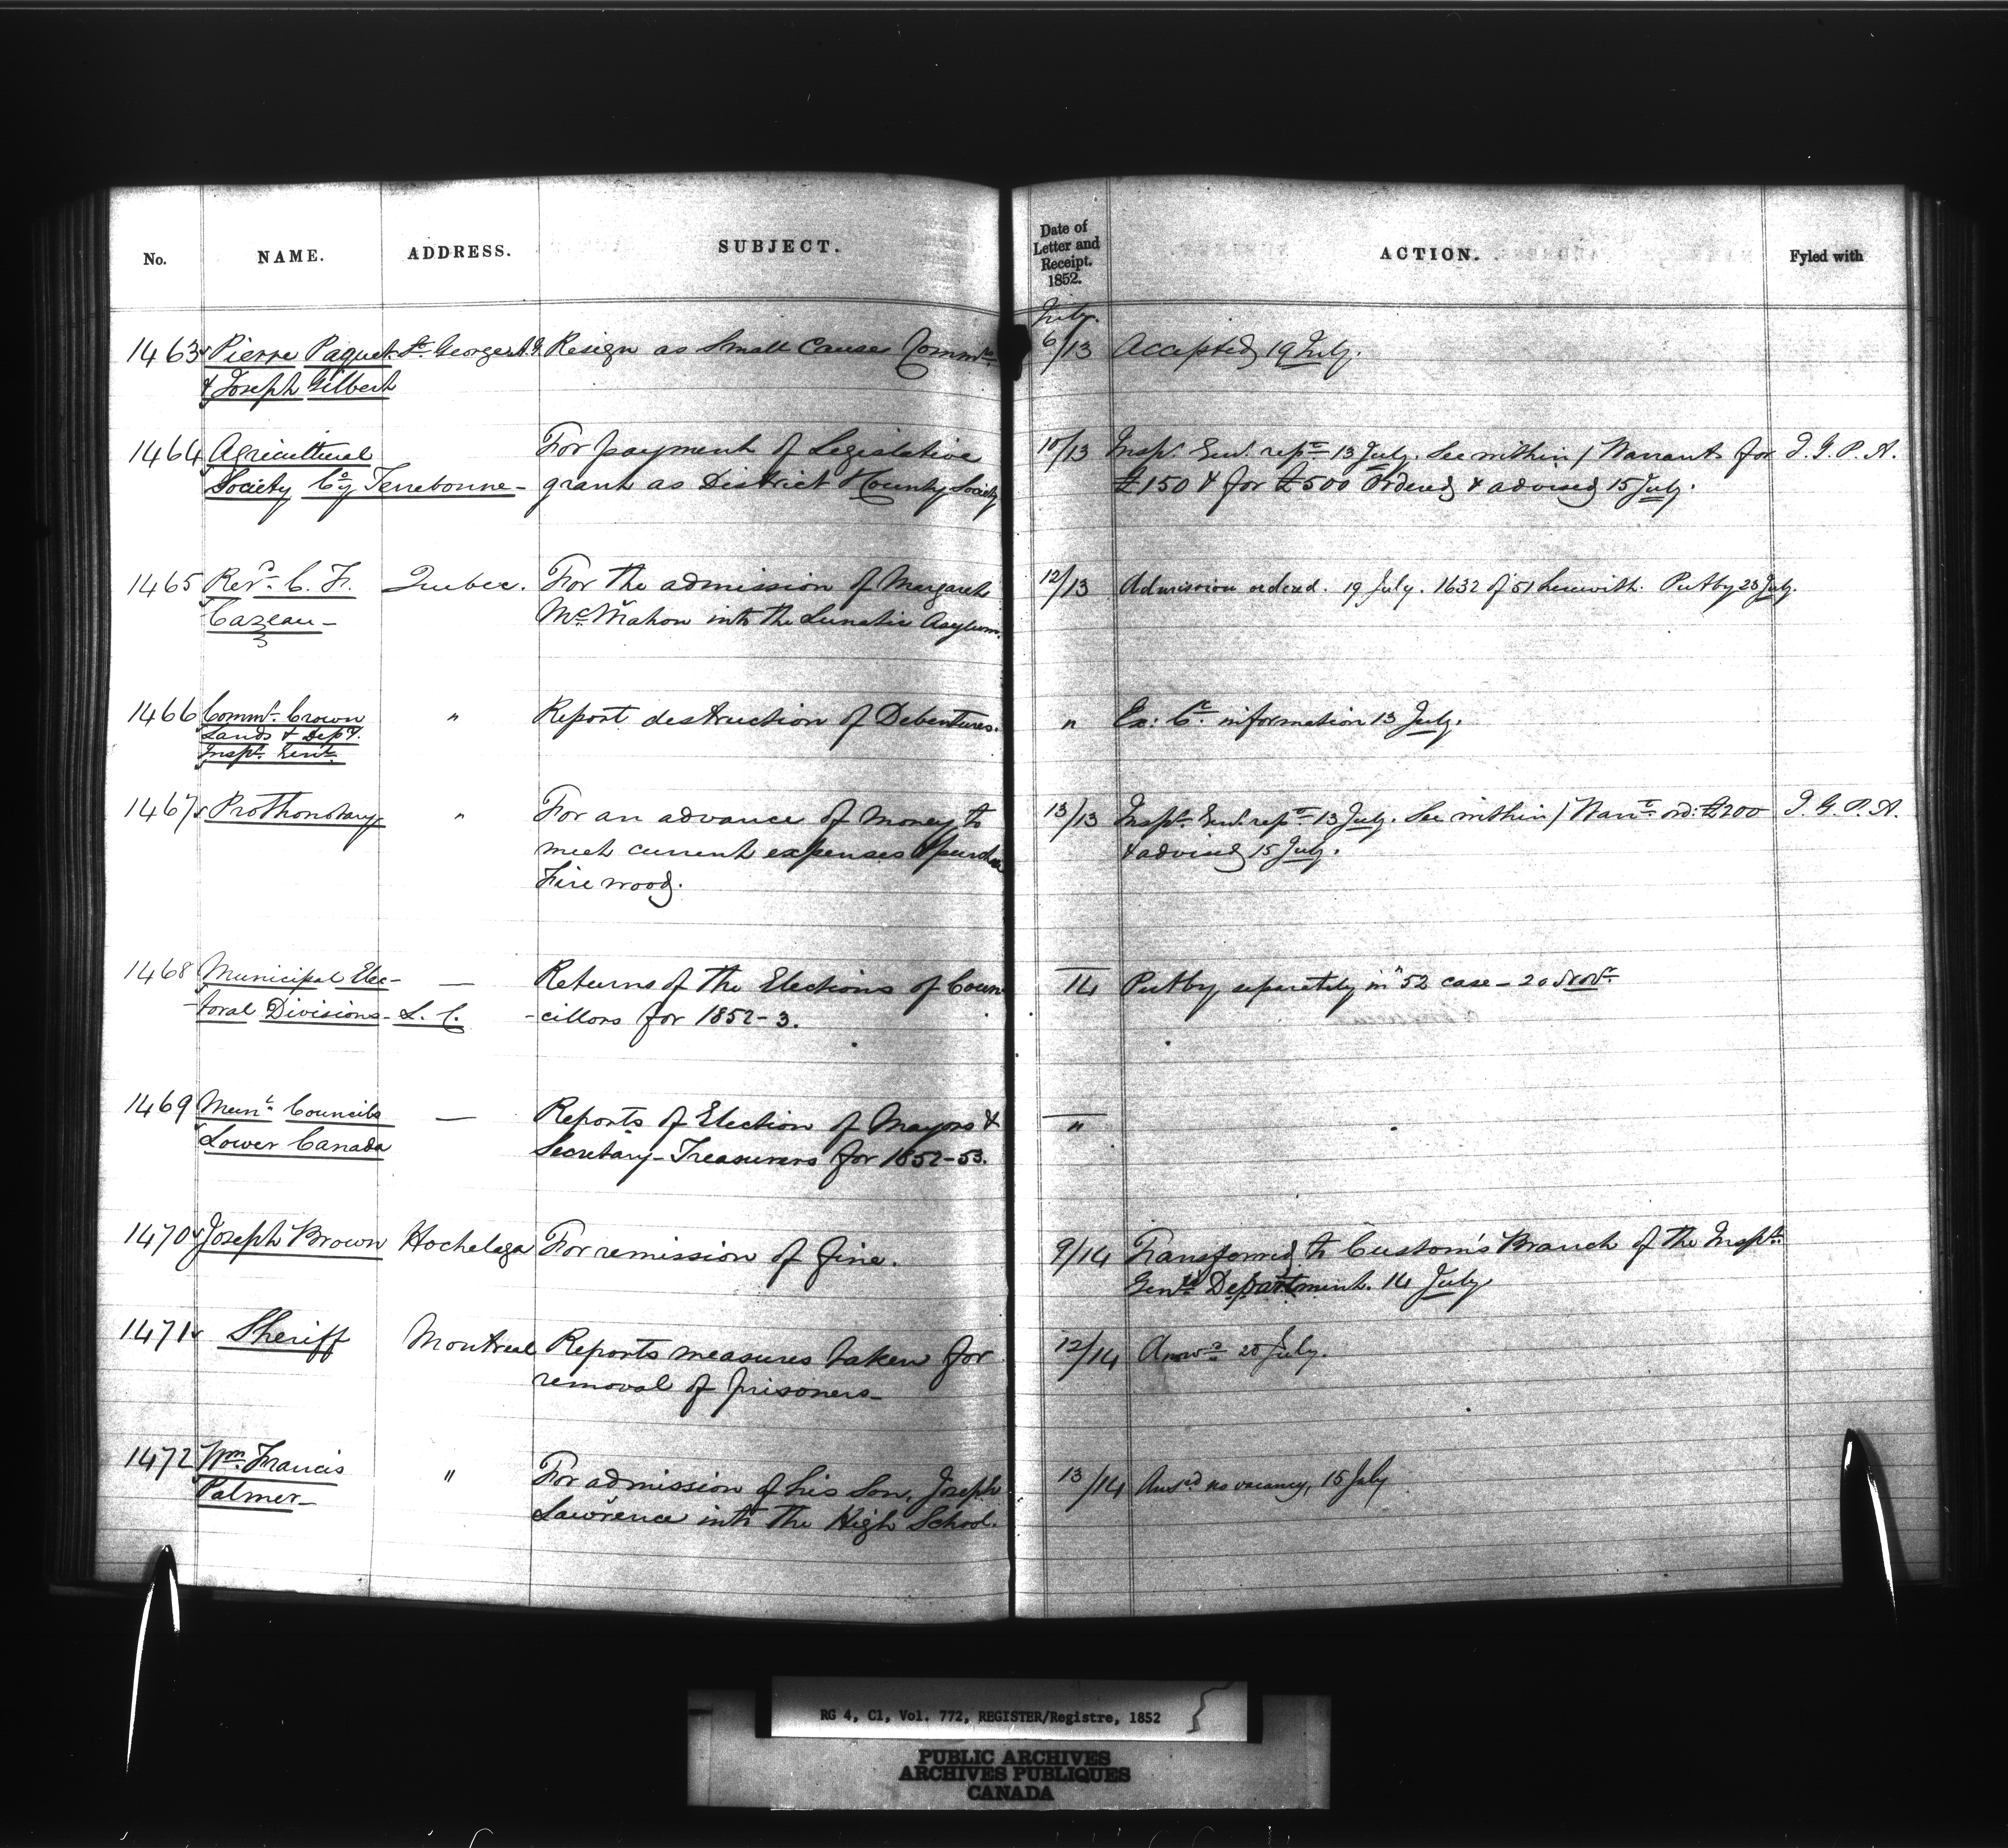 No. NAME. ADDRESS. SUBJECT. Date of Letter and Receipt. 1852. ACTION. Fyled with
July
1463 Pierre Paquet St. Georges Resign as Small Cause Commrs 6/13 Accepted 19 July.
& Joseph Gilbert
1464 Agricultural For payment of Legislative 10/13 Inspr. Genl. repte 13 July. See within / Warrants for I. G. P. A.
Society Coy Terrebonne - grant as District & County Society £150 & for £500 ordered & advised 15 July.
1465 Revd. C. F. Quebec. For the admission of Margaret 12/13 Admission ordered. 19 July. 1632 of 51 herewith. Put by 23 July.
Cazeau - McMahon into the Lunatic Asylum.
1466 Commr. Crown " Report destruction of Debentures. " Ex: Cl. information 13 July.
Lands & Depy.
Inspr. Genl.
1467 Prothonotary " For an advance of money to 13/13 Inspr. Genl. repte 13 July. See within / Warrt. ord: £200 I. G. P. A.
meet current expenses & purchase & advised 15 July.
Fire wood.
1468 Municipal Elec- — Returns of the Elections of Coun- 14 Put by separately in '52 case - 20 Novr.
-toral Divisions - L. C. -cillors for 1852-3.
1469 Munl. Councils — Reports of Election of Mayors & "
Lower Canada Secretary-Treasurers for 1852-53.
1470 Joseph Brown Hochelaga For remission of fine. 9/14 Transferred to Custom's Branch of the Inspr.
Genl's Department. 14 July
1471 Sheriff Montreal Reports measures taken for 12/14 Answd. 20 July.
removal of prisoners -
1472 Wm. Francis " For admission of his Son, Joseph 13/14 Ansd. no vacancy, 15 July
Palmer - Lawrence into the High School.
RG 4, C1, Vol. 772, REGISTER/Registre, 1852
PUBLIC ARCHIVES
ARCHIVES PUBLIQUES
CANADA